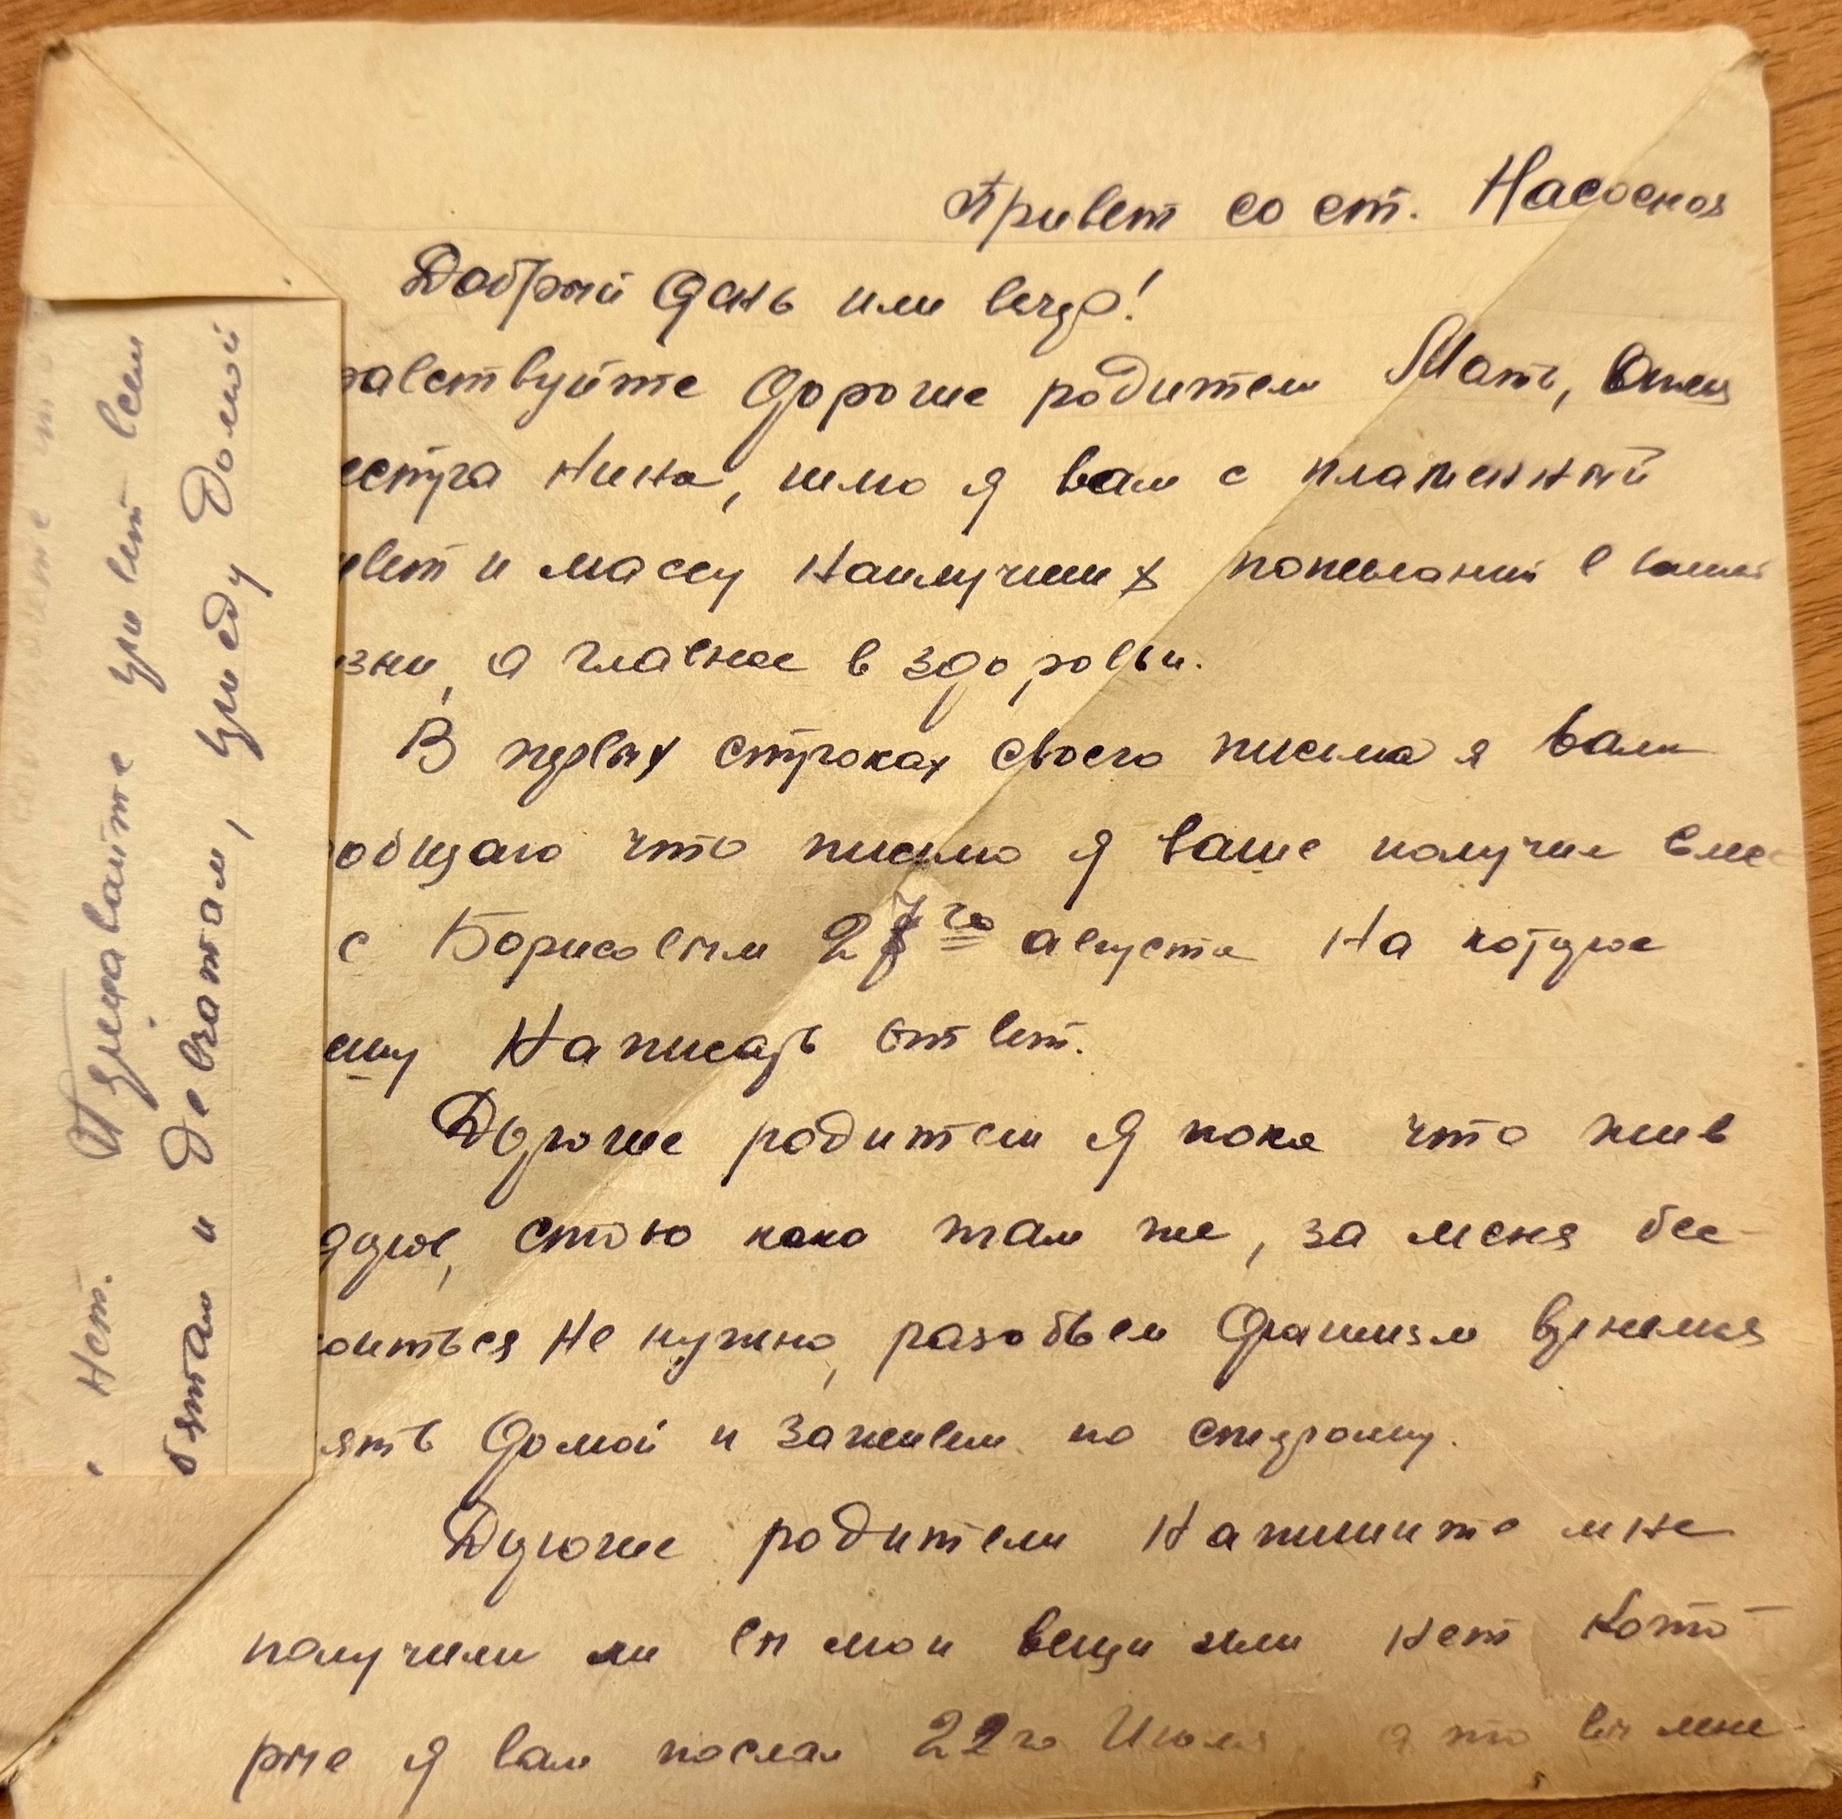 Привет со ст. Насосная
Добрый день или вечер!
равствуйте дорогие родители Мать, Отец
естра Нина, шлю я вам с пламенный
ивет и массу наилучших пожеланий в вашей
зни, а главное в здоровьи.
В первых строках своего письма я вам
ообщаю что письмо я ваше получил вмес
с Борисовым 27го августа на которое
ешу написать ответ.
Дорогие родители я пока что жив
здоров, стою пока там же, за меня бес-
оиться не нужно, разобьем фашизм вернемся
ять домой и заживем по старому.
Дорогие родители напишите мне
получили ли вы мои вещи или нет кото-
рые я вам послал 22го Июля а то вы мне
нет. Передавайте привет всем
бятам и девчатам, приеду домой